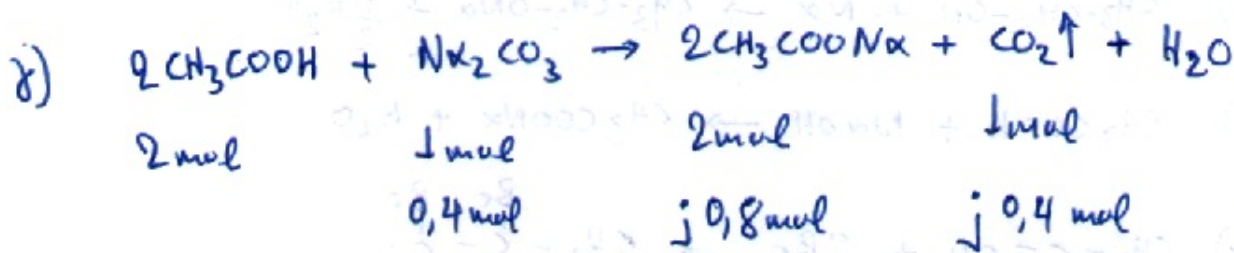 γ) 2CH₃COOH + Nα₂CO₃ → 2CH₃COONα + CO₂↑ + H₂O
2mol 1mol 2mol 1mol
0,4mol j 0,8mol j 0,4 mol